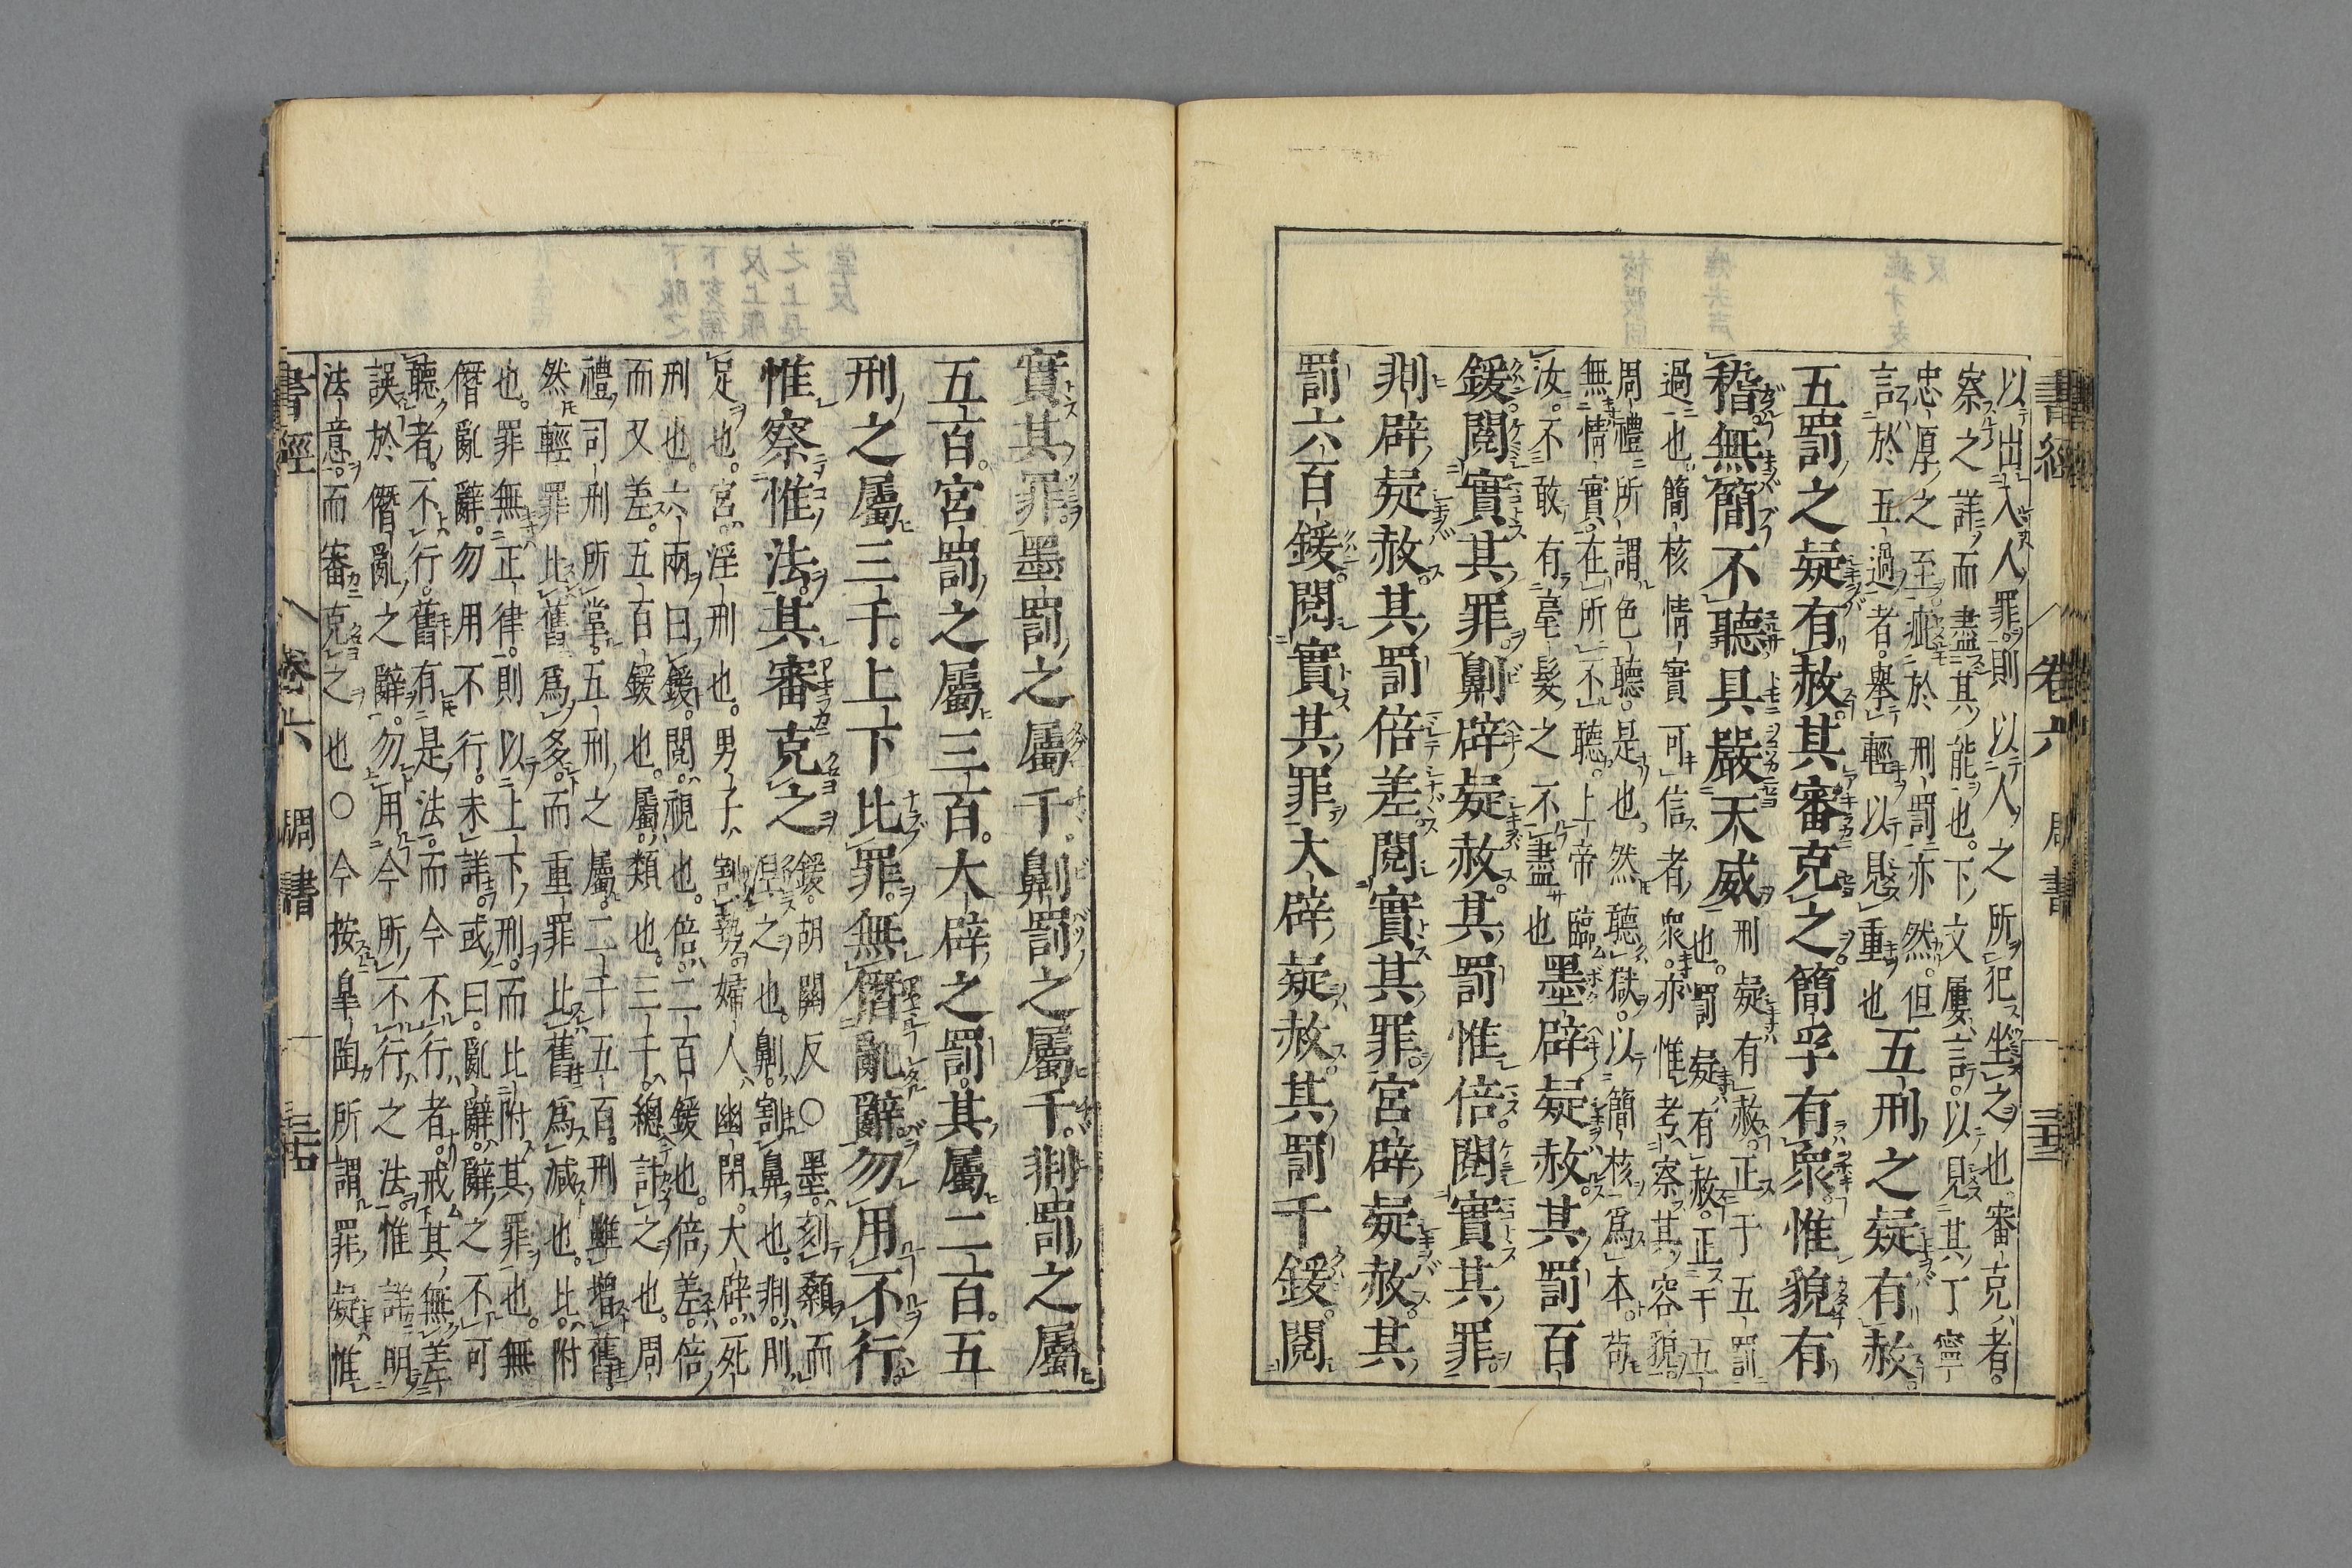 書經　卷六　周書
以出入人罪。則以人之所犯坐之也審克者。
察之詳而盡其能也。下文屢言。以見其丁寧
忠厚之至疵於刑罰亦然。但
言於五過者。擧輕以見重也
五刑之疑有赦。
五罰之疑有赦。其審克之。簡孚有衆。惟貌有
稽。無簡不聽具嚴天威
刑疑有赦。正于五罰
也。罰疑有赦。正于五
過也。簡核情實可信者衆。亦惟考察其容貌。
周禮所謂色聽。是也。然聽獄。以簡核爲本。苟
無情實。在所不聽。上帝臨
汝。不敢有毫髮之不盡也
墨辟疑赦。其罰百
鍰。閲實其罪。劓辟疑赦。其罰惟倍。閲實其罪。
剕辟疑赦。其罰倍差閲實其罪。宮辟疑赦。其
罰六百鍰。閲實其罪大辟疑赦。其罰千鍰。閲
實其罪。墨罰之屬千。劓罰之屬千。剕罰之屬
五百。宮罰之屬三百。大辟之罰。其屬二百。五
刑之屬三千。上下比罪。無僭亂辭勿用不行。
惟察惟法。其審克之
鍰。胡關反○墨。刻顙而
涅之也。劓。割鼻也。剕。刖
足也。宮。淫刑也。男子割勢婦人幽閉。大辟。死
刑也。六兩曰鍰。閲。視也。倍。二百鍰也。倍差。倍
而又差。五百鍰也。屬。類也。三千。總計之也。周
禮司刑所掌。五刑之屬。二千五百。刑雖增舊。
然輕罪比舊爲多。而重罪比舊爲減也。比。附
也。罪無正律。則以上下刑。而比附其罪也。無
僭亂辭。勿用不行。未詳。或曰。亂辭。辭之不可
聽者。不行。舊有是法。而今不行者。戒其無差
誤於僭亂之辭。勿用今所不行之法。惟詳明
法意。而審克之也○今按皐陶所謂罪疑惟
書經　卷六　周書